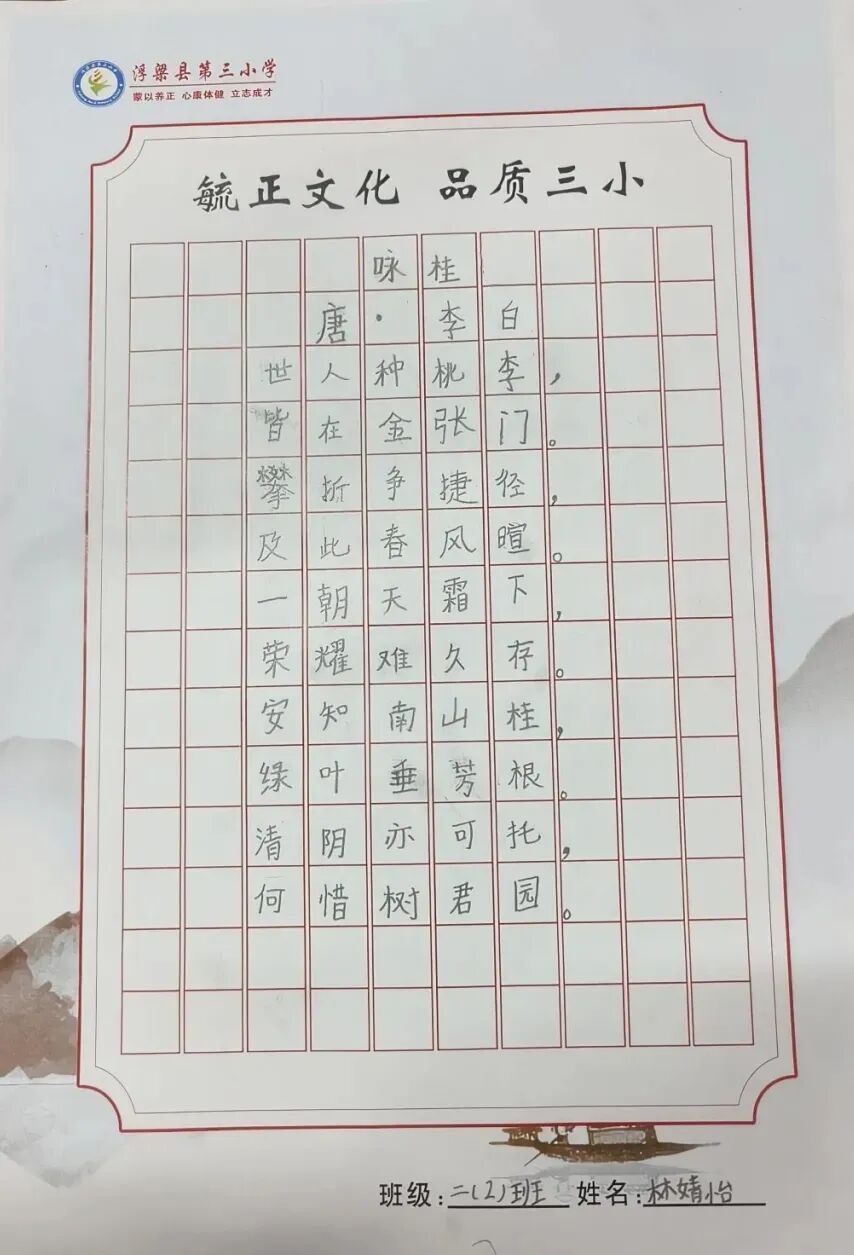 浮梁县第三小学
蒙以养正 心康体健 立志成才
毓正文化 品质三小
咏桂
唐·李白
世人种桃李，
皆在金张门。
攀折争捷径，
及此春风暄。
一朝天霜下，
荣耀难久存。
安知南山桂，
绿叶垂芳根。
清阴亦可托，
何惜树君园。
班级:二(2)班 姓名:林婧怡